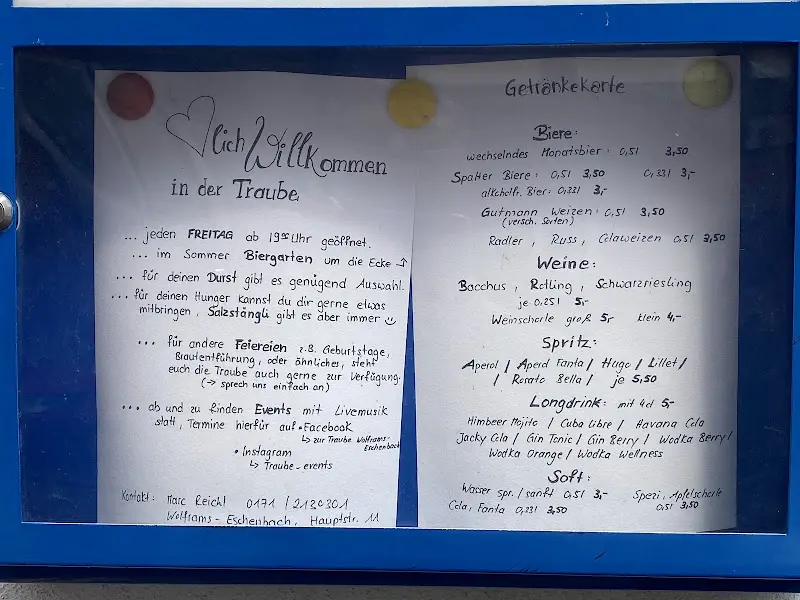 lich Willkommen
in der Traube
... jeden FREITAG ab 19⁰⁰ Uhr geöffnet.
... im Sommer Biergarten um die Ecke
... für deinen Durst gibt es genügend Auswahl.
... für deinen Hunger kannst du dir gerne etwas
mitbringen, Salzstängli gibt es aber immer
... für andere Feiereien z.B. Geburtstage,
Brautentführung, oder ähnliches, steht
euch die Traube auch gerne zur Verfügung.
(→ sprech uns einfach an)
... ab und zu finden Events mit Livemusik
statt, Termine hierfür auf • Facebook
↳ zur Traube Wolframs-
Eschenbach
• Instagram
↳ Traube-events
Kontakt: Marc Reichl 0171 / 2130301
Wolframs-Eschenbach, Hauptstr. 11
Getränkekarte
Biere:
wechselndes Monatsbier: 0,5l 3,50
Spalter Biere: 0,5l 3,50 0,33l 3,-
alkoholfr. Bier: 0,33l 3,-
Gutmann Weizen: 0,5l 3,50
(versch. Sorten)
Radler, Russ, Colaweizen 0,5l 3,50
Weine:
Bacchus, Rotling, Schwarzriesling
je 0,25l 5,-
Weinschorle groß 5,- klein 4,-
Spritz:
Aperol / Aperol Fanta / Hugo / Lillet /
/ Rosato Bella / je 5,50
Longdrink: mit 4cl 5,-
Himbeer Mojito / Cuba Libre / Havana Cola
Jacky Cola / Gin Tonic / Gin Berry / Wodka Berry /
Wodka Orange / Wodka Wellness
Soft:
Wasser spr. / sanft 0,5l 3,- Spezi, Apfelschorle
Cola, Fanta 0,33l 3,50 0,5l 3,50